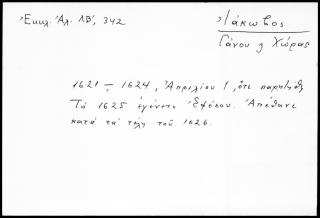 Ἐκκλ. Ἀλ. ΛΒ', 342
Ἰάκωβος
Γάνου κ Χώρας
1621 – 1624, Ἀπριλίου 1, ὅτε παρῃτήθη
Τό 1625 ἐγένετο Ἐφέσου. Ἀπέθανε
κατά τά τέλη τοῦ 1626.